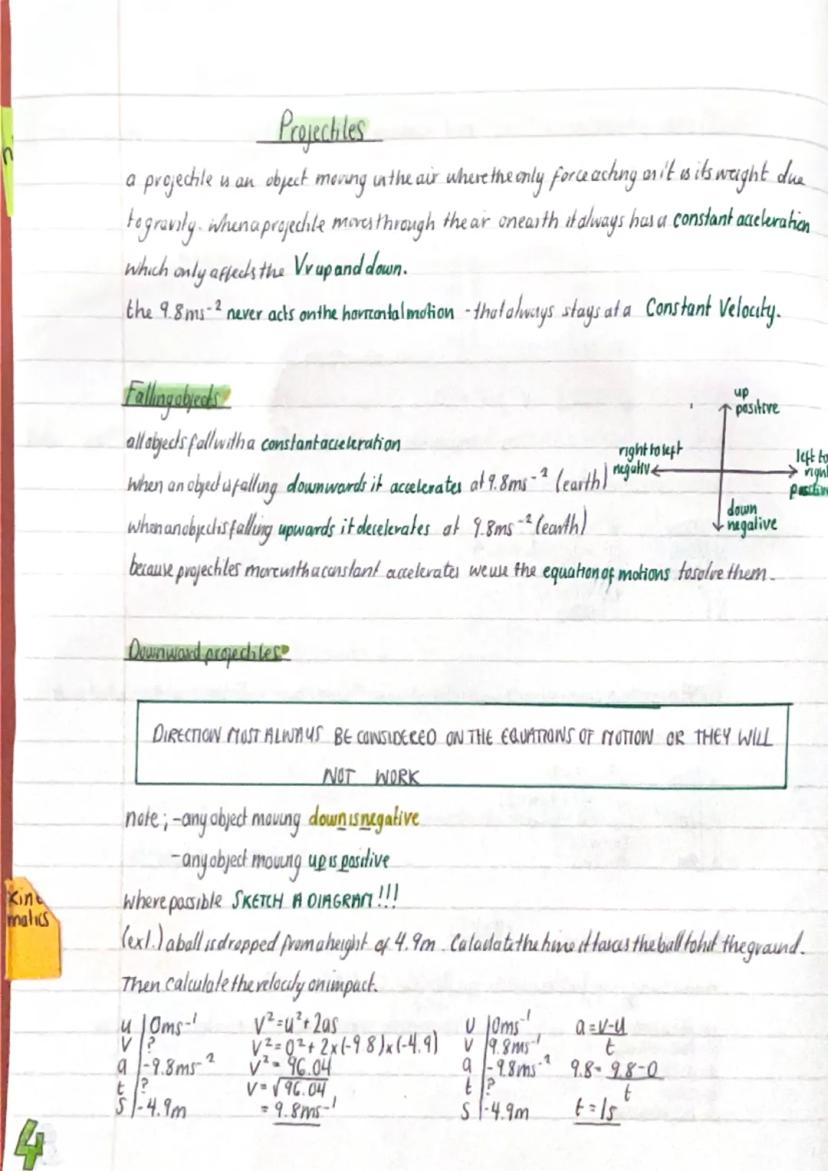 Projectiles
a projectile is an object moving in the air where the only force acting on it is its weight due
to gravity. when a projectile moves through the air on earth it always has a constant acceleration
which only affects the Vv up and down.
the 9.8ms⁻² never acts on the horizontal motion - that always stays at a Constant Velocity.
Falling objects
up
positive
all objects fall with a constant acceleration
right to left
negative
left to
right
positive
when an object is falling downwards it accelerates at 9.8ms⁻² (earth)
when an object is falling upwards it decelerates at 9.8ms⁻² (earth)
down
negative
because projectiles move with a constant accelerates we use the equation of motions to solve them.
Downward projectiles
DIRECTION MUST ALWAYS BE CONSIDERED ON THE EQUATIONS OF MOTION OR THEY WILL
NOT WORK
note; - any object moving down is negative
- any object moving up is positive
where possible SKETCH A DIAGRAM!!!
Kine
matics
(ex1.) a ball is dropped from a height of 4.9m. Calculate the time it takes the ball to hit the ground.
Then calculate the velocity on impact.
u | 0ms⁻¹
v | ?
a | -9.8ms⁻²
t | ?
s | -4.9m
v² = u² + 2as
v² = 0² + 2x(-9.8)x(-4.9)
v² = 96.04
v = √96.04
= 9.8ms⁻¹
u | 0ms⁻¹
v | 9.8ms⁻¹
a | -9.8ms⁻²
t | ?
s | -4.9m
a = v-u
t
9.8 = 9.8-0
t
t = 1s
4